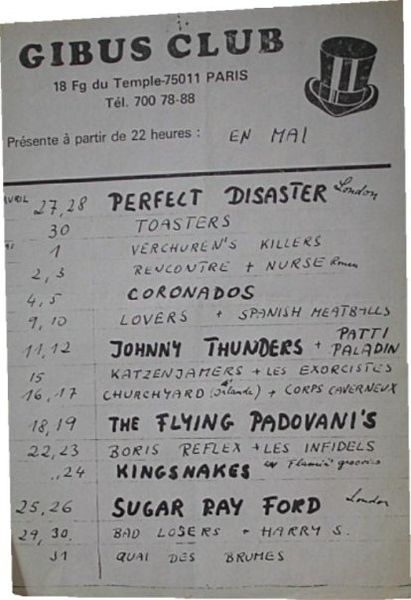 GIBUS CLUB
18 Fg du Temple-75011 PARIS
Tél. 700 78-88
Présente à partir de 22 heures : EN MAI
AVRIL 27,28 PERFECT DISASTER London
30 TOASTERS
1 VERCHUREN'S KILLERS
2,3 RENCONTRE + NURSE Rouen
4,5 CORONADOS
9,10 LOVERS + SPANISH MEATBALLS
11,12 JOHNNY THUNDERS + PATTI PALADIN
15 KATZENJAMERS + LES EXORCISTES
16,17 CHURCHYARD (Irlande) + CORPS CAVERNEUX
18,19 THE FLYING PADOVANI'S
22,23 BORIS REFLEX + LES INFIDELS
24 KINGSNAKES ex Flamin' groovies
25,26 SUGAR RAY FORD London
29,30. BAD LOSERS + HARRY S.
31 QUAI DES BRUMES